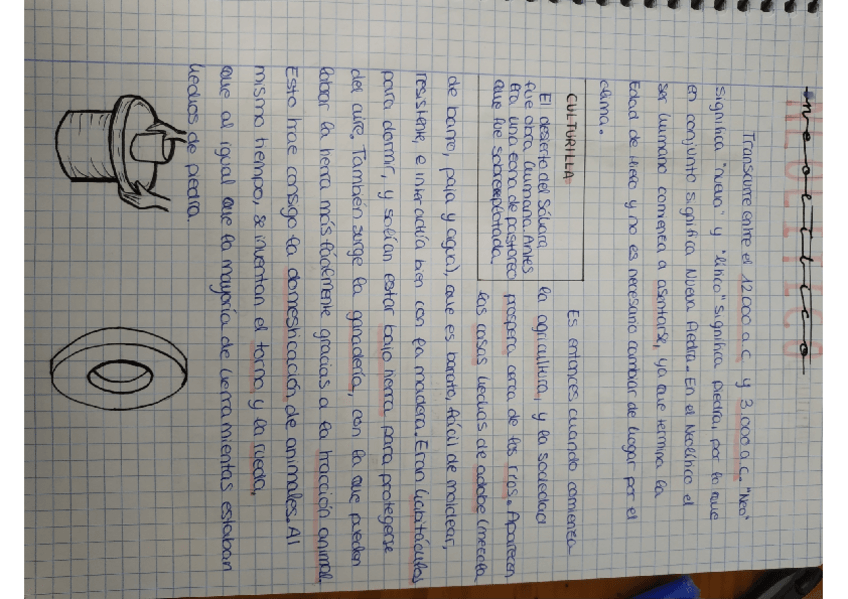 neolítico
Transcurre entre el 12.000 a.C. y 3.000 a.C. "Neo"
significa "nuevo" y "lítico" significa piedra, por lo que
en conjunto significa Nueva Piedra. En el Neolítico el
ser humano comienza a asentarse, ya que termina la
Edad de Hielo y no es necesario cambiar de lugar por el
clima.
CULTURILLA
El desierto del Sáhara
fue obra humana. Antes
era una zona de pastoreo
que fue sobreexplotada.
Es entonces cuando comienza
la agricultura, y la sociedad
prospera cerca de los ríos. Aparecen
las casas hechas de adobe (mezcla
de barro, paja y agua), que es barato, fácil de moldear,
resistente, e interactúa bien con la madera. Eran habitáculos
para dormir, y solían estar bajo tierra para protegerse
del aire. También surge la ganadería, con la que pueden
labrar la tierra más fácilmente gracias a la tracción animal.
Esto trae consigo la domesticación de animales. Al
mismo tiempo, se inventan el torno y la rueda,
que al igual que la mayoría de herramientas estaban
hechos de piedra.